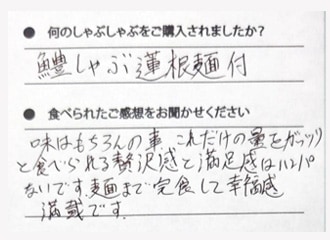 ● 何のしゃぶしゃぶをご購入されましたか?
鱧しゃぶ蓮根麺付
● 食べられたご感想をお聞かせください
味はもちろんの事 これだけの量をガッツリ
と食べられる贅沢感と満足感はハンパ
ないです。麺まで完食して幸福感
満載です。